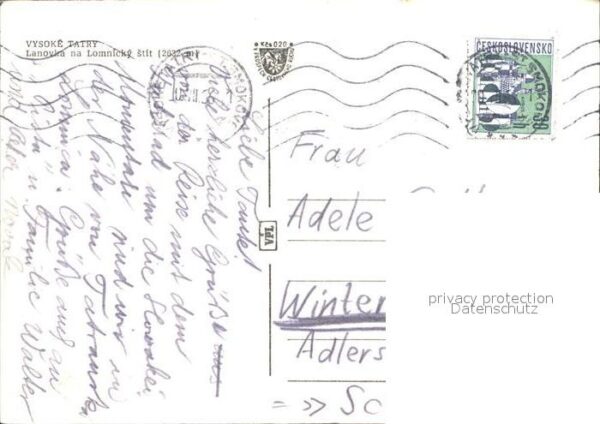 VYSOKÉ TATRY
Lanovka na Lomnický štít (2632 m)
Liebe Tante!
Viele herzliche Grüße
von der Reise mit dem
Fahrrad um die Slowakei
Momentan sind wir in
der Nähe von Tatranska
Lomnica. Grüße auch an
Familie Walter
VPL
ČESKOSLOVENSKO
60
Frau
Adele
Winter
Adlers
=>> SC
privacy protection
Datenschutz